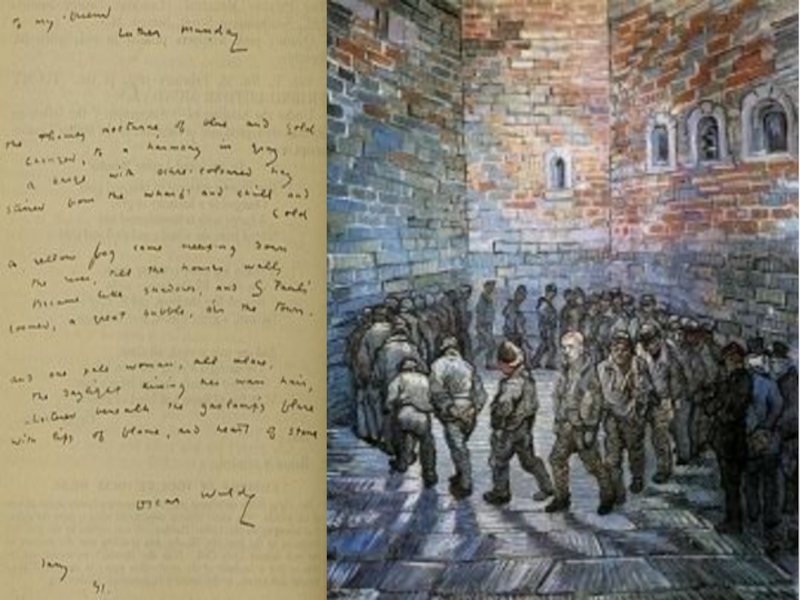 To my friend
Luther Munday
The Thames nocturne of blue and gold
changed, to a harmony in gray
a barge with ochre-coloured hay
from the wharf: and chill and
cold
A yellow fog came creeping down
the river, till the houses walls
became like shadows, and S Pauls'
Loomed, a great bubble, o'er the town.
And one pale woman, all alone,
The daylight kissing her hair,
Loitered beneath the gaslamps flare
with lips of flame, and heart of stone
Oscar Wilde
Jany.
91.